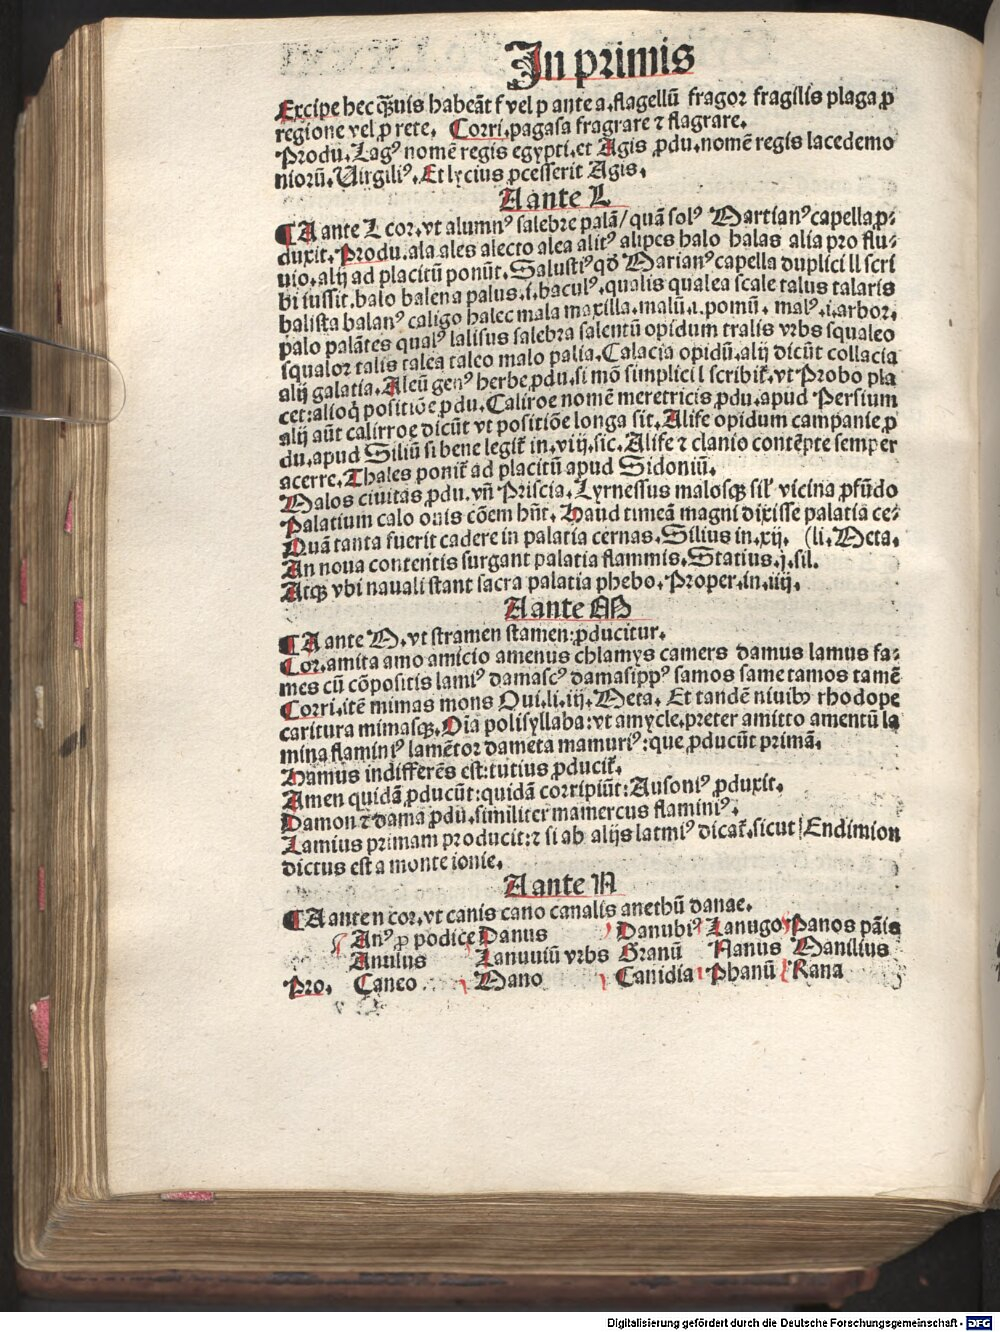 In primis
Excipe hec q̃uis habeāt f vel p ante a. flagellū fragor fragilis plaga ꝓ
regione vel ꝓ rete. Corri. pagasa fragrare ⁊ flagrare.
Produ. Lagꝰ nomē regis egypti. et Agis ꝓdu. nomē regis lacedemo
niorū. Uirgiliꝰ. Et lycius ꝓcesserit Agis.
A ante L
¶ A ante L cor. vt alumnꝰ salebre palā/ quā solꝰ Martianꝰ capella ꝓ⸗
duxit. Produ. ala ales alecto alea alitꝰ alipes halo halas alia pro flu⸗
uio. alij ad placitū ponūt. Salustiꝰ qđ Marianꝰ capella duplici ll scri
bi iussit. halo balena palus. i. baculꝰ. qualis qualea scale talus talaris
balista balanꝰ caligo halec mala maxilla. malū. i. pomū. malꝰ. i. arbor.
palo palātes qualꝰ lalisus salebra salentū opidum tralis vrbs squaleo
squalor talis talea taleo malo palia. Calacia opidū. alij dicūt collacia
alij galatia. Aleū genꝰ herbe ꝓdu. si mō simplici l scribit̃. vt Probo pla
cet: alioq̃ positiōe ꝓdu. Caliroe nomē meretricis ꝓdu. apud Persium
alij aūt calirroe dicūt vt positiōe longa sit. Alife opidum campanie ꝓ
du. apud Siliū si bene legit̃ in. viij. sic. Alife ⁊ clanio contēpte semper
acerre. Thales ponit̃ ad placitū apud Sidoniū.
Malos ciuitas ꝓdu. vñ Priscia. Lyrnessus malosqꝫ sil̃ vicina ꝓfūdo
Palatium calo ouis cōem hñt. Haud timeā magni dixisse palatia ce⸗
Quā tanta fuerit cadere in palatia cernas. Silius in. xij. (li. Meta.
An noua contentis surgant palatia flammis. Statius. j. sil.
Atqꝫ vbi nauali stant sacra palatia phebo. Proper. in. iiij.
A ante M
¶ A ante M. vt stramen stamen: ꝓducitur.
Cor. amita amo amicio amenus chlamys camers damus lamus fa⸗
mes cū cōpositis lamiꝰ damascꝰ damasippꝰ samos same tamos tamē
Corri. itē mimas mons Oui. li. iij. Meta. Et tandē niuibꝰ rhodope
caritura mimasqꝫ. Oīa polisyllaba: vt amycle. preter amitto amentū la
mina flaminiꝰ lamētor dameta mamuriꝰ: que ꝓducūt primā.
Hamus indifferēs est: tutius ꝓducit̃.
Amen quidā ꝓducūt: quidā corripiūt: Ausoniꝰ ꝓduxit.
Damon ⁊ dama ꝓdū. similiter mamercus flaminiꝰ.
Lamius primam producit: ⁊ si ab alijs latmiꝰ dicat̃. sicut Endimion
dictus est a monte ionie.
A ante N
¶ A ante n cor. vt canis cano canalis anethū danae.
Anꝰ ꝓ podice Danus Danubiꝰ Lanugo Panos pāis
Anulus Lanuuiū vrbs Granū Nanus Manilius
Pro. Caneo Mano Canidia Phanū Rana
Digitalisierung gefördert durch die Deutsche Forschungsgemeinschaft - DFG